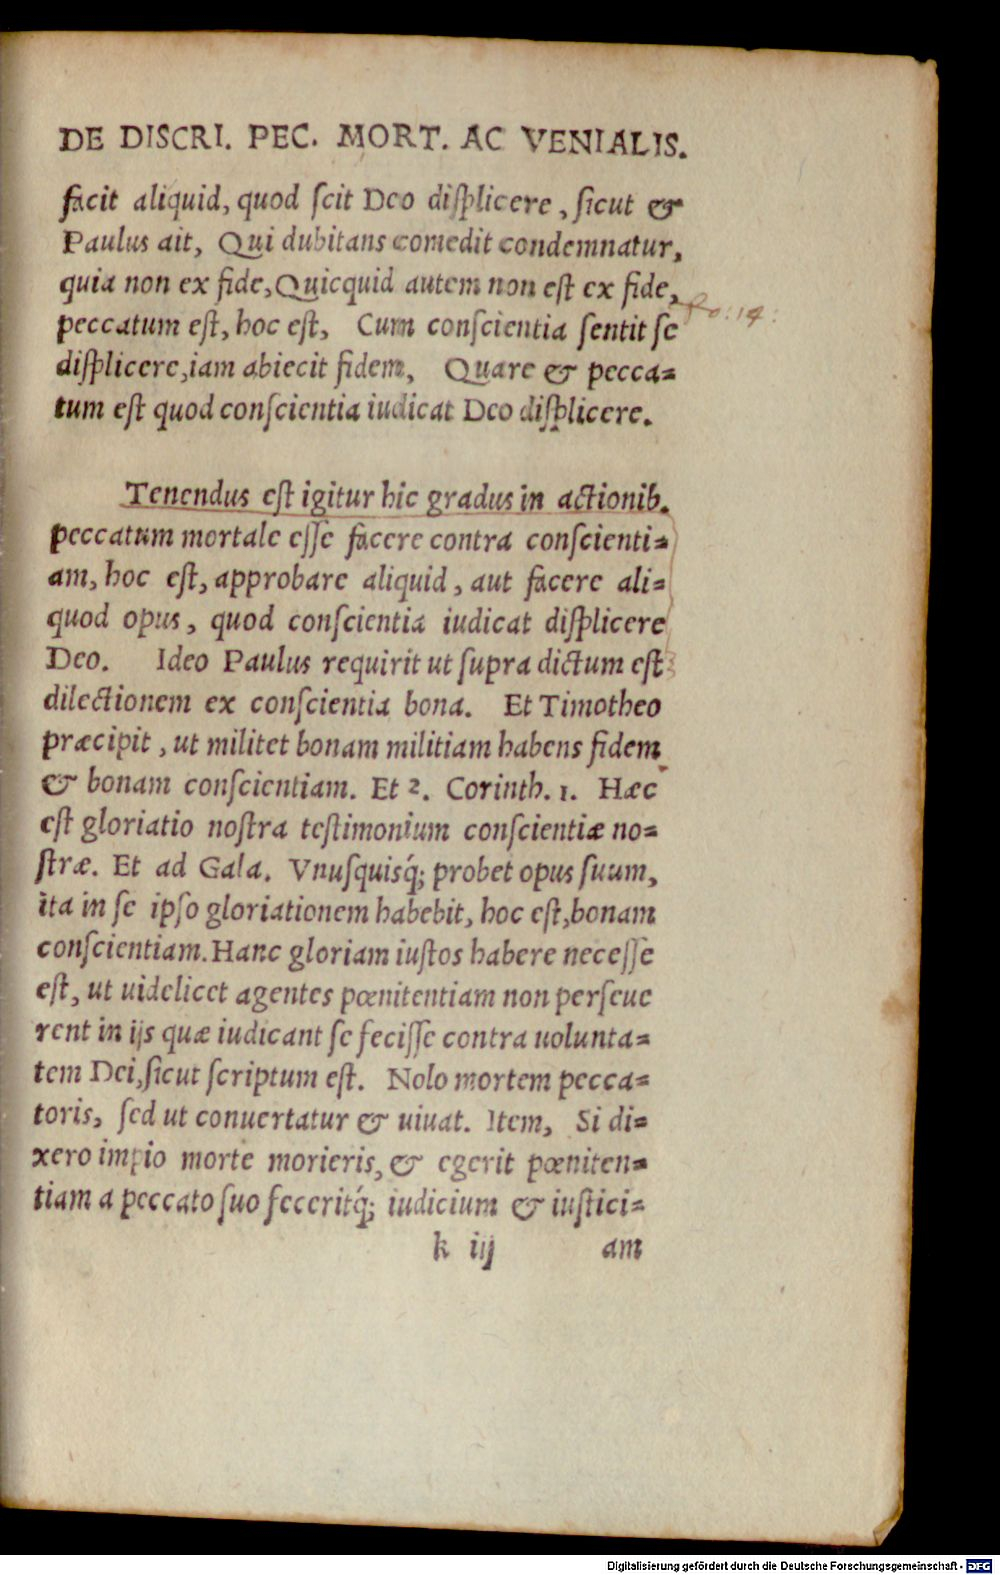 DE DISCRI. PEC. MORT. AC VENIALIS.
facit aliquid, quod ſcit Deo diſplicere, ſicut &
Paulus ait, Qui dubitans comedit condemnatur,
quia non ex fide, Quicquid autem non eſt ex fide,
peccatum eſt, hoc eſt, Cum conſcientia ſentit ſe
diſplicere, iam abiecit fidem, Quare & pecca=
tum eſt quod conſcientia iudicat Deo diſplicere.
Ro: 14:
Tenendus eſt igitur hic gradus in actionib.
peccatum mortale eſſe facere contra conſcienti=
am, hoc eſt, approbare aliquid, aut facere ali=
quod opus, quod conſcientia iudicat diſplicere
Deo. Ideo Paulus requirit ut ſupra dictum eſt
dilectionem ex conſcientia bona. Et Timotheo
præcipit, ut militet bonam militiam habens fidem
& bonam conſcientiam. Et 2. Corinth. 1. Hæc
eſt gloriatio noſtra teſtimonium conſcientiæ no=
ſtræ. Et ad Gala. Vnuſquisq́; probet opus ſuum,
ita in ſe ipſo gloriationem habebit, hoc eſt, bonam
conſcientiam. Hanc gloriam iuſtos habere neceſſe
eſt, ut uidelicet agentes pœnitentiam non perſeue
rent in ijs quæ iudicant ſe feciſſe contra uolunta=
tem Dei, ſicut ſcriptum eſt. Nolo mortem pecca=
toris, ſed ut conuertatur & uiuat. Item, Si di=
xero impio morte morieris, & egerit pœniten=
tiam a peccato ſuo feceritq́; iudicium & iuſtici=
k iij am
Digitalisierung gefördert durch die Deutsche Forschungsgemeinschaft - DFG